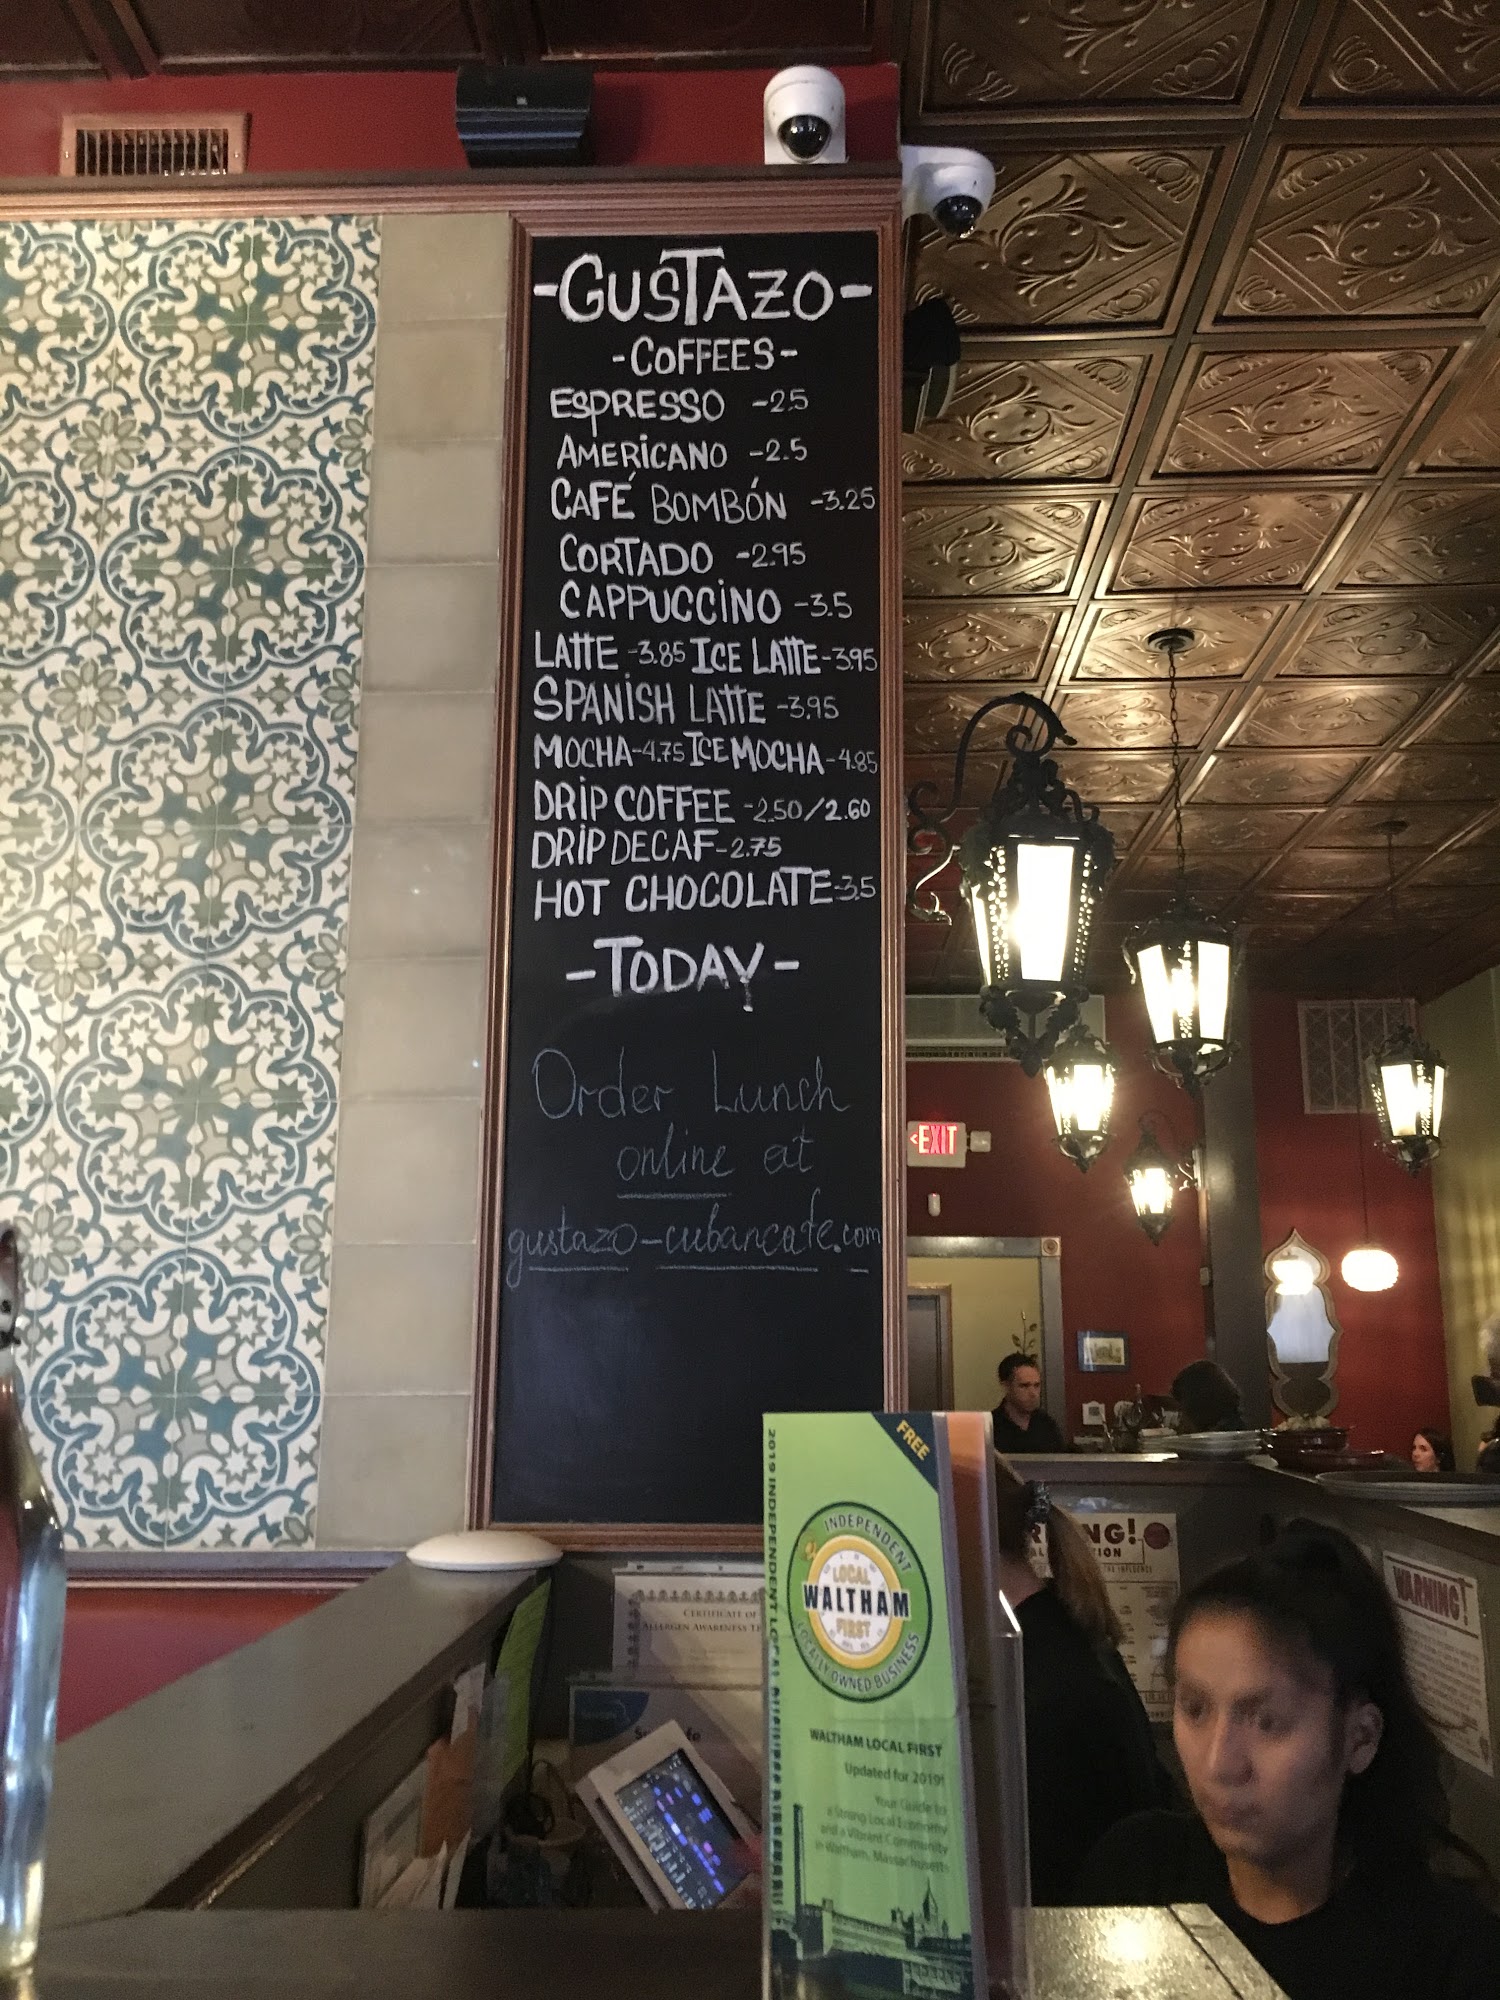 -GUSTAZO-
-COFFEES-
ESPRESSO -2.5
AMERICANO -2.5
CAFÉ BOMBÓN -3.25
CORTADO -2.95
CAPPUCCINO -3.5
LATTE -3.85 ICE LATTE -3.95
SPANISH LATTE -3.95
MOCHA -4.75 ICE MOCHA -4.85
DRIP COFFEE -2.50/2.60
DRIP DECAF -2.75
HOT CHOCOLATE -3.5
-TODAY-
Order Lunch
online at
gustazo-cubancafe.com
<EXIT
FREE
2019 INDEPENDENT LOCAL
INDEPENDENT
LOCAL
WALTHAM
FIRST
LOCALLY OWNED BUSINESS
WALTHAM LOCAL FIRST
Updated for 2019!
Your Guide to
a Strong Local Economy
and a Vibrant Community
in Waltham, Massachusetts
CERTIFICATE OF
ALLERGEN AWARENESS
WARNING!